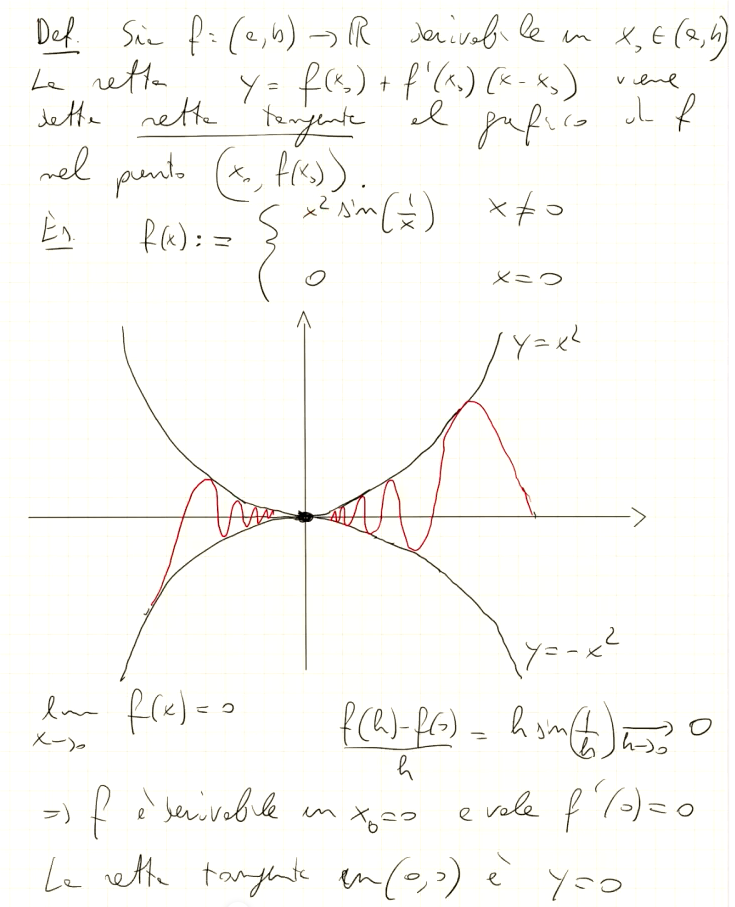 Def. Sia f: (a,b) → ℝ derivabile in x₀ ∈ (a,b)
La retta y = f(x₀) + f'(x₀) (x - x₀) viene
detta retta tangente al grafico di f
nel punto (x₀, f(x₀)).
Es. f(x) := { x² sin(1/x) x ≠ 0
0 x = 0
y = x²
y = -x²
lim x→0 f(x) = 0 (f(h) - f(0))/h = h sin(1/h) → h→0 0
=> f è derivabile in x₀=0 e vale f'(0) = 0
La retta tangente in (0,0) è y=0